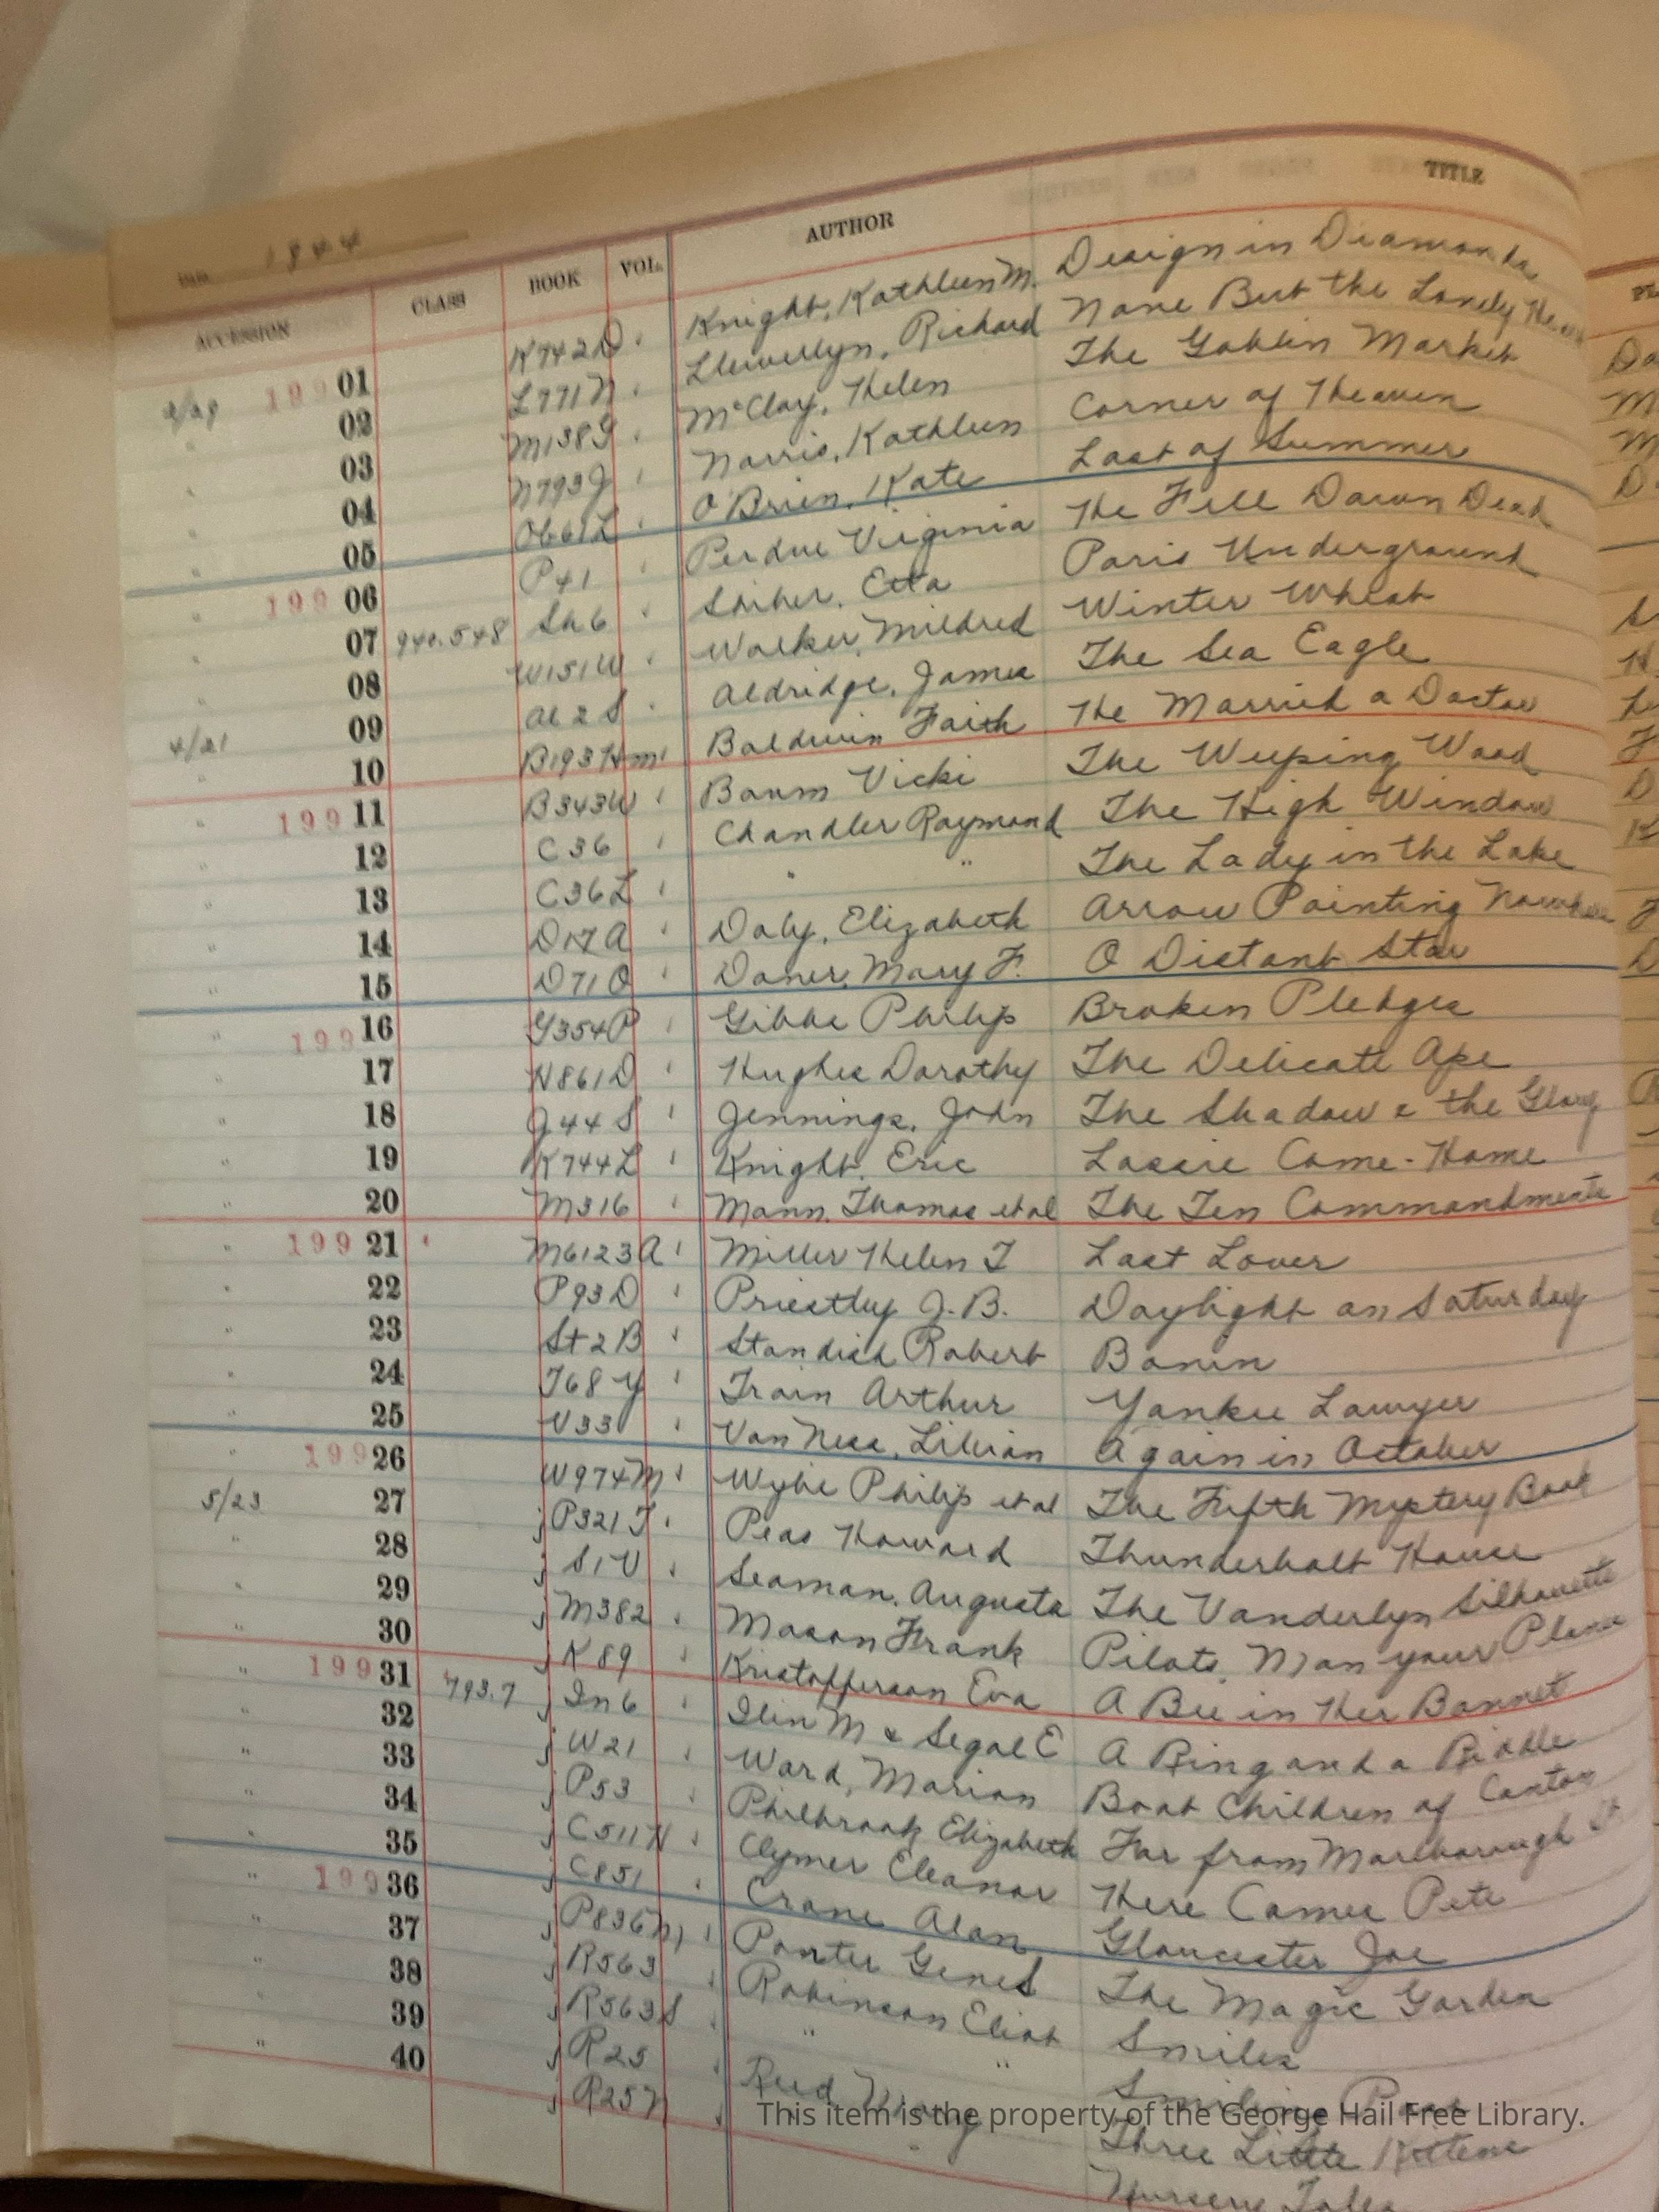 1944
TITLE
AUTHOR
ACCESSION CLASS BOOK VOL.
199 01 K742D Knight, Kathleen M. Design in Diamonds
02 L771N Llewellyn, Richard None But the Lonely Heart
03 M138G McCloy, Helen The Goblin Market
04 N793 Norris, Kathleen Corner of Heaven
05 Ob61L O'Brien, Kate Last of Summer
199 06 P41 Perdue Virginia He Fell Down Dead
07 940.548 Sh6 Shiber, Etta Paris Underground
08 W151W Walker, Mildred Winter Wheat
09 Al2S Aldridge, James The Sea Eagle
4/21 10 B193Hm Baldwin Faith He Married a Doctor
199 11 B343W Baum Vicki The Weeping Wood
12 C36 Chandler Raymond The High Window
13 C36L " " The Lady in the Lake
14 D17A Daly, Elizabeth Arrow Pointing Nowhere
15 D71O Doner, Mary F. O Distant Star
199 16 G354P Gibbs Philip Broken Pledges
17 H861D Hughes Dorothy The Delicate Ape
18 J44S Jennings, John The Shadow & the Glory
19 K744L Knight, Eric Lassie Come-Home
20 M316 Mann, Thomas et al The Ten Commandments
199 21 M6123A Miller Helen T Last Lover
22 P93D Priestley J. B. Daylight on Saturday
23 St2B Standish Robert Bonin
24 T68Y Train Arthur Yankee Lawyer
25 V33 Van Ness, Lilian Again in October
199 26 W974M Wylie Philip et al The Fifth Mystery Book
5/23 27 j P321T Peas Howard Thunderbolt House
28 j S1V Seaman, Augusta The Vanderlyn Silhouette
29 j M382 Mason Frank Pilots, Man your Planes
30 j K89 Kristofferson Eva A Bee in Her Bonnet
199 31 793.7 j In6 Ilin M & Segal E A Ring and a Riddle
32 j W21 Ward, Marion Boat Children of Canton
33 j P53 Philbrook Elizabeth Far from Marlborough St
34 j C511H Clymer Eleanor Here Comes Pete
35 j C851 Crane Alan Gloucester Joe
199 36 j P836M Porter Gene S The Magic Garden
37 j R563 Robinson Eliot Smiles
38 j R563S " " Smiling Pass
39 j R25 Reed Mary Three Little Kittens
40 j R257N " Nursery Tales
This item is the property of the George Hail Free Library.